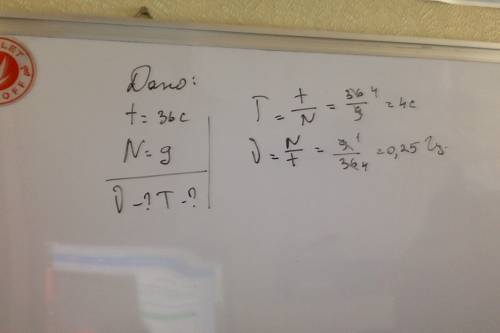 LET
OFF
Дано:
t = 36 c
N = 9
ν - ? T - ?
T = t/N = 36/9 4 = 4c
ν = N/t = 9 1/36 4 = 0,25 Гц.